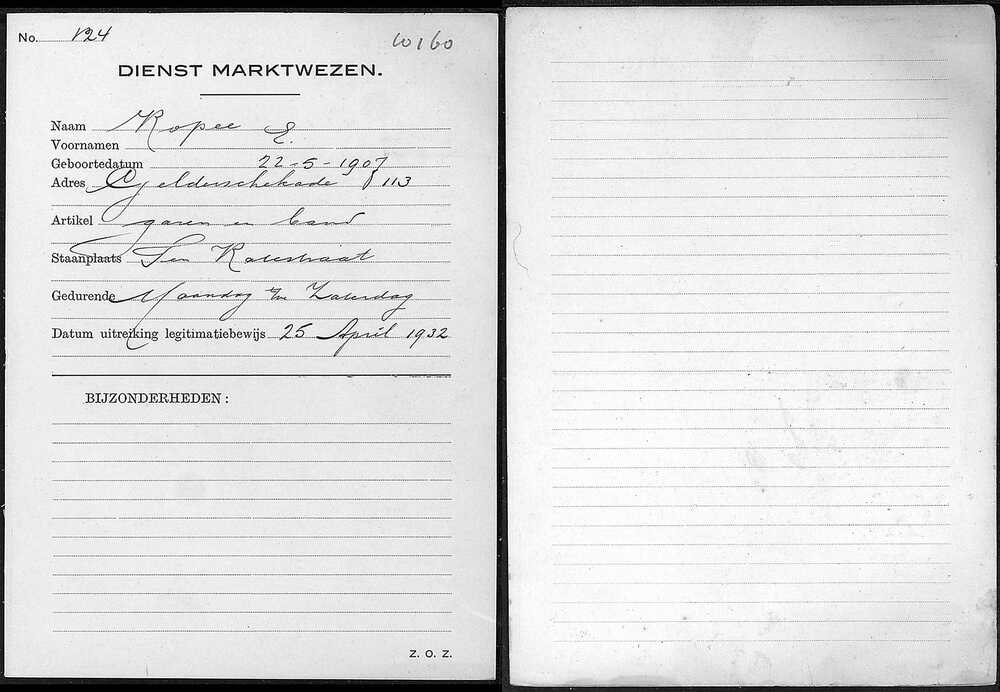 No. 124
10160
DIENST MARKTWEZEN.
Naam Kopee E.
Voornamen
Geboortedatum 22-5-1907
Adres Gelderschekade 113
Artikel garen en band
Staanplaats Ten Katestraat
Gedurende Maandag t/m Zaterdag
Datum uitreiking legitimatiebewijs 25 April 1932
BIJZONDERHEDEN:
Z. O. Z.